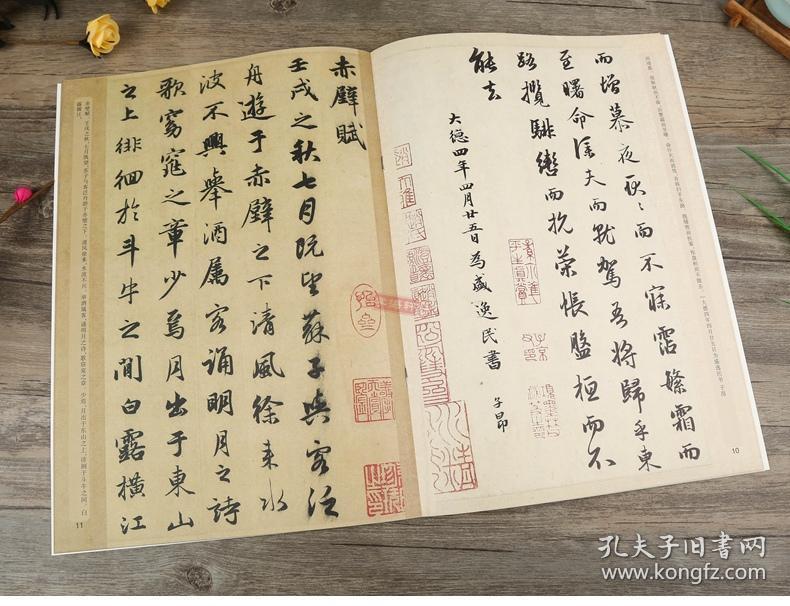 而增慕夜耿耿而不寐霑繁霜而
至曙命仆夫而就驾吾将歸乎東
路攬騑轡而抗策悵盤桓而不
能去
大德四年四月廿五日为盛逸民書
子昂
10
赤壁賦
壬戌之秋七月既望蘇子與客泛
舟遊于赤壁之下清風徐來水
波不興舉酒属客誦明月之詩
歌窈窕之章少焉月出于東山
之上徘徊於斗牛之間白露橫江
11
孔夫子旧书网
www.kongfz.com